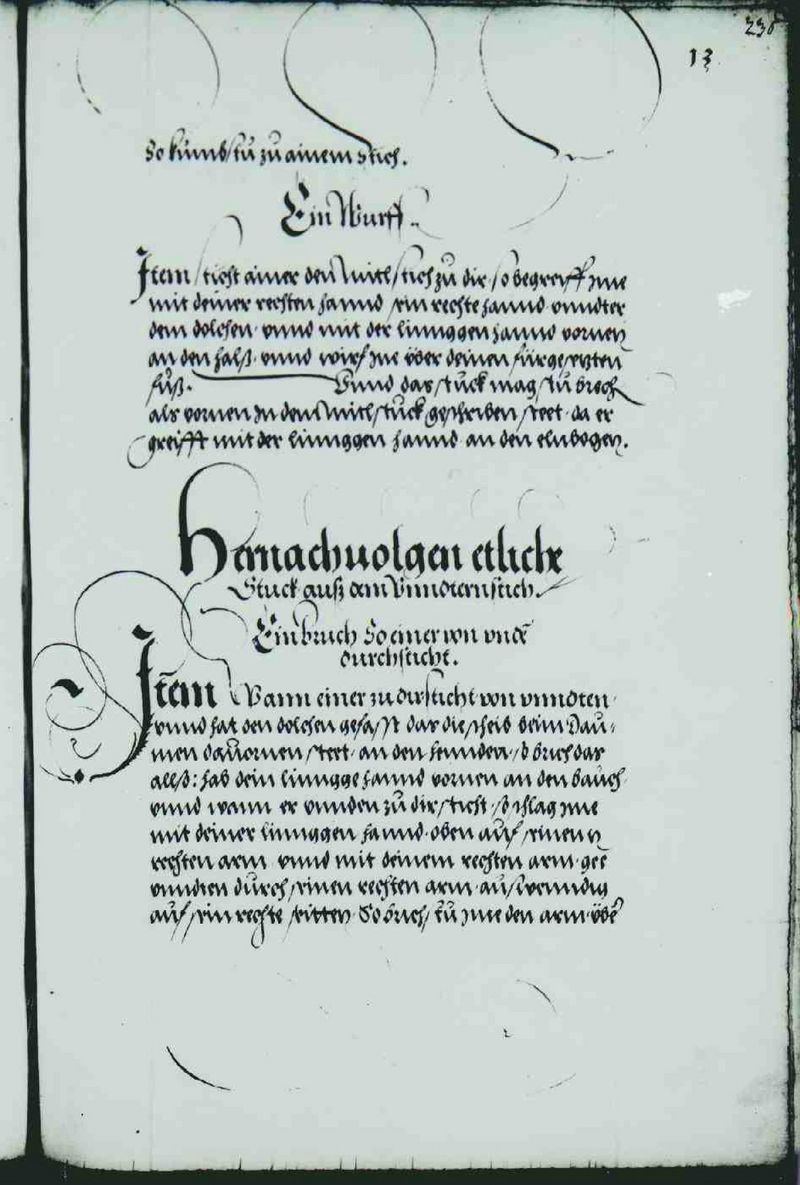 238
13
So kumbstu zu ainem stich.
Ein Wurff.
Item sticht ainer den Mitlstich zu dir, so begreiff Ime
mit deiner rechten hannd, sein rechte hannd, vnndter
dem dolchen, vnnd mit der linnggen hannd vornen
an den halß, vnnd wirf Ine über deinen fürgesetzten
fuß. Vnnd das stuck magstu brech
als vornen In dem Mitlstuck geschriben steet, da er
greifft mit der linnggen hannd, an den elnbogen.
Hernachuolgen etliche
Stuck auß dem Vnndternstich.
Ein bruch So einer von vnde
durchsticht.
Item Wann einer zu dir sticht von vnndten,
vnnd hat den dolchen gefasst das die scheib beim Dau-
men dauornen steet, an den hennden, so brich das
allß: hab dein linngge hannd vornen an den bauch
vnnd wann er vnnden zu dir sticht, so schlag Ime
mit deiner linnggen hannd, oben auf seinen
rechten arm, vnnd mit deinem rechten arm, gee
vnndten durch seinen rechten arm, außwenndig
auf sein rechte seitten, So brichstu Ime den arm, übe